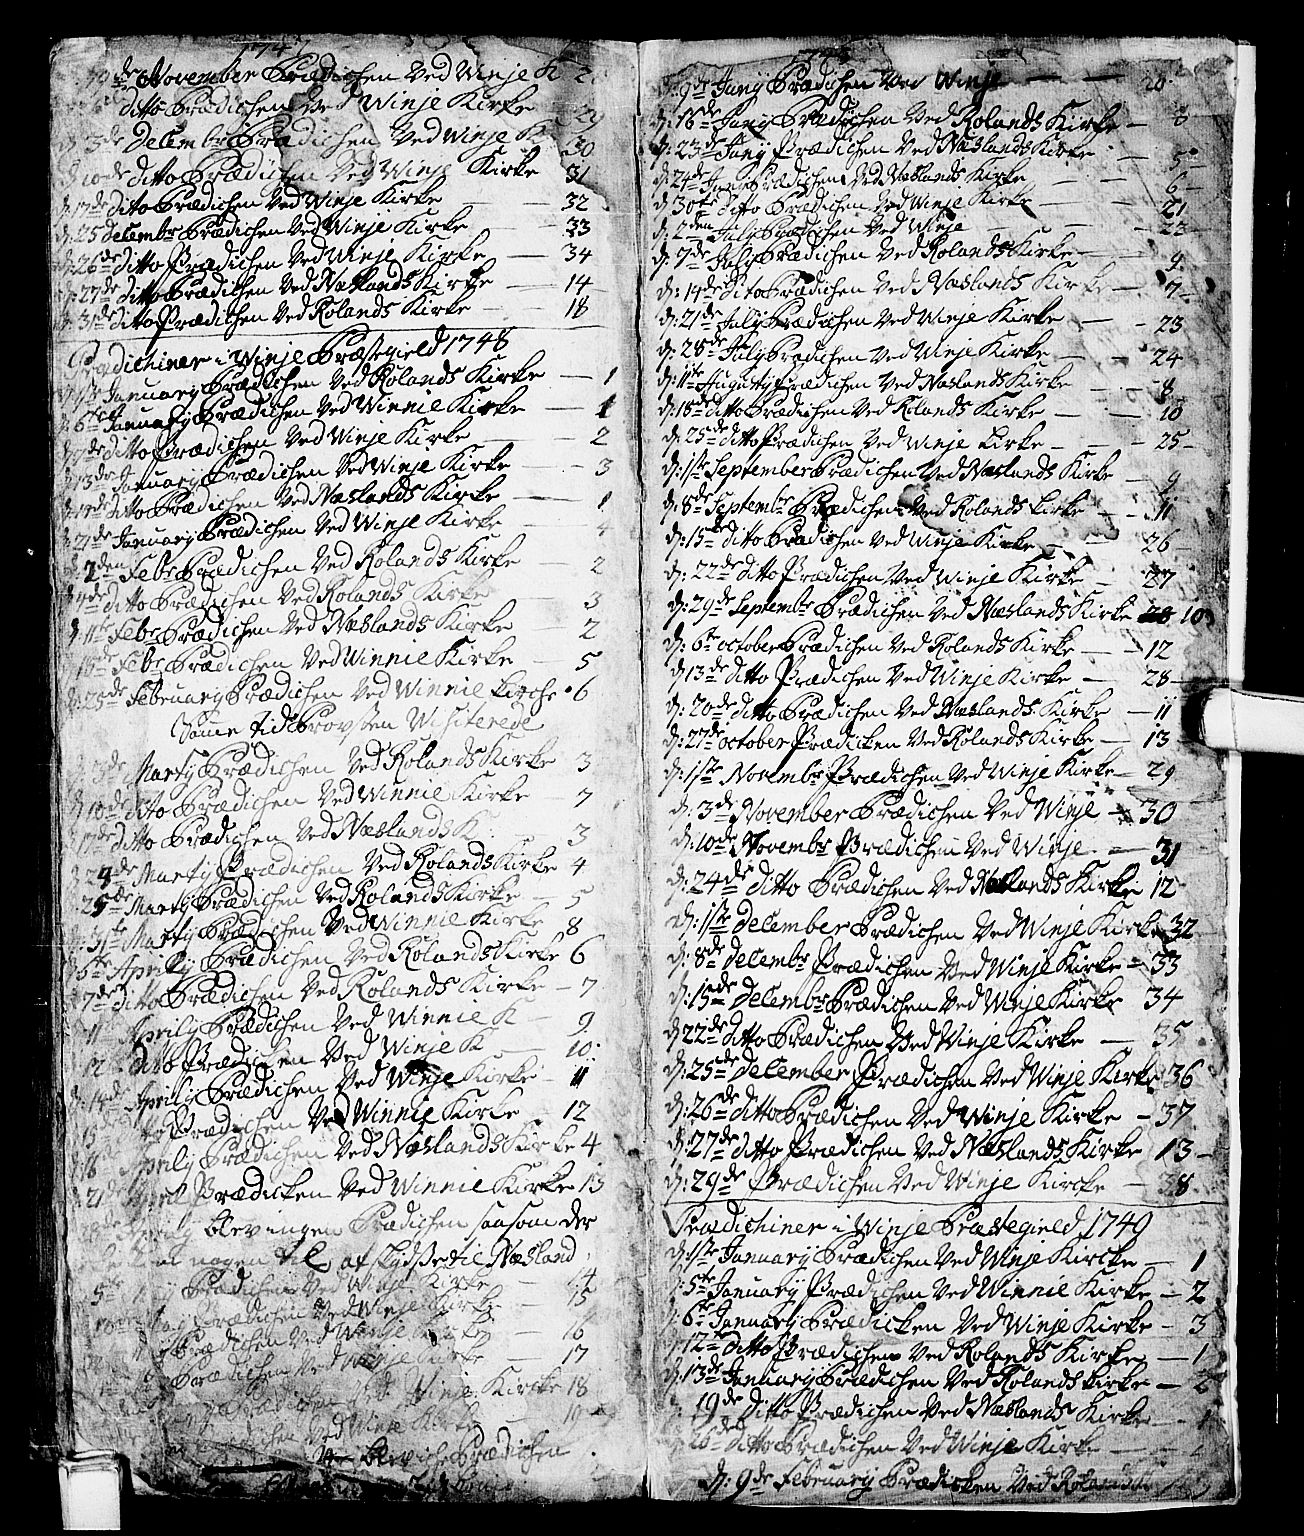 1747
19de November Prædichen Ved Winje K 2
ditto Prædichen Ved Winje Kirke 29
3de Decembr Prædichen Ved Winje K 30
d: 10de ditto Prædichen Ved Winje Kirke 31
d: 17de ditto Prædichen Ved Winje Kirke — 32
d: 25 Decembr Prædichen Ved Winje Kirke — 33
d: 26de ditto Prædichen Ved Winje Kirke — 34
d: 27de ditto Prædichen Ved Næslands Kirke — 14
d: 31de ditto Prædichen Ved Rolands Kirke — 18
Prædichiner i Winje Præstegield 1748
Januarÿ Prædichen Ved Rolands Kirke — 1
d: 6te Januarÿ Prædichen Ved Winnie Kirke — 1
ditto Prædichen Ved Winje Kirke — 2
d: 13de Januarÿ Prædichen Ved Winje Kirke — 3
ditto Prædichen Ved Næslands Kirke — 1
d: 21de Januarÿ Prædichen Ved Winje Kirke — 4
d: 2den Febr Prædichen Ved Rolands Kirke — 2
d: 4de ditto Prædichen Ved Rolands Kirke 3
d: 11te Febr Prædichen Ved Næslands Kirke — 2
Febr Prædichen Ved Winnie Kirke — 5
d: 25de Februarÿ Prædichen Ved Winnie Kirche 6
Samme Tid Provsten Visiterede
d: 3de Martÿ Prædichen Ved Rolands Kirke 3
d: 10de ditto Prædichen Ved Winnie Kirke — 7
d: 17de ditto Prædichen Ved Næslands K 3
d: 24de Martÿ Prædichen Ved Rolands Kirke 4
25de Martÿ Prædichen Ved Rolands Kirke — 5
d: 31te Martÿ Prædichen Ved Winnie Kirke 8
Aprilÿ Prædichen Ved Rolands Kirke 6
7de ditto Prædichen Ved Rolands Kirke — 7
Aprilÿ Prædichen Ved Winnie K — 9
12 ditto Prædicken Ved Winje K — 10
d: 14de Aprilÿ Prædichen Ved Winje Kirke — 11
Prædichen Ved Winnie Kirke — 12
Aprilÿ Prædichen Ved Næslands Kirke 4
d: 21de Aprill Prædicken Ved Winnie Kirke 13
28de Aprilÿ blev ingen Prædichen saasom der
af skydsse til Næsland
5te Prædichen Ved Winje Kirke — 14
Prædichen Ved Winje Kirke — 15
Prædichen Ved Winje Kirke — 16
Prædichen Ved Winje Kirke — 17
Prædichen Ved Winje Kircke 18
Prædichen Ved Winje Kirke
blev iche Prædichen
d: 9de Junÿ Prædichen Ved Winje — 20
d: 16de Junÿ Prædichen Ved Rolands Kirke — 8
d: 23de Junÿ Prædichen Ved Næslands Kirke — 5
d: 24de Junÿ Prædichen Ved Næslands Kirke — 6
d: 30te ditto Prædichen Ved Winje Kirke — 21
d: 2den Julÿ Prædichen Ved Winje — 22
d: 7de Julÿ Prædichen Ved Rolands Kirke — 9
d: 14de ditto Prædichen Ved Næslands Kirke — 7
d: 21de Julÿ Prædichen Ved Winje Kirke — 23
d: 28de Julÿ Prædichen Ved Winje Kirke — 24
d: 11te Augustÿ Prædichen Ved Næslands Kirke — 8
d: 18de ditto Prædichen Ved Rolands Kirke — 10
d: 25de ditto Prædichen Ved Winje Kirke — 25
d: 1ste September Prædichen Ved Næslands Kirke 9
d: 8de Septembr Prædichen Ved Rolands Kirke — 11
d: 15de ditto Prædichen Ved Winje Kirke — 26
d: 22de ditto Prædichen Ved Winje Kirke — 27
d: 29de Septembr Prædichen Ved Næslands Kirke 10
d: 6te october Prædichen Ved Rolands Kirke — 12
d: 13de ditto Prædichen Ved Winje Kirke 28
d: 20de ditto Prædichen Ved Næslands Kirke — 11
d: 27de october Prædicken Ved Rolands Kirke — 13
d: 1ste Novembr Prædichen Ved Winje Kirke — 29
d: 3de November Prædichen Ved Winje — 30
d: 10de Novembr Prædichen Ved Winje — 31
d: 24de ditto Prædichen Ved Næslands Kirke 12
d: 1ste December Prædichen Ved Winje Kirke 32
d: 8de Decembr Prædichen Ved Winje Kirke — 33
d: 15de Decembr Prædichen Ved Winje Kirke 34
d: 22de ditto Prædichen Ved Winje Kirke — 35
d: 25de December Prædichen Ved Winje Kirke 36
d: 26de ditto Prædichen Ved Winje Kirke — 37
d: 27de ditto Prædichen Ved Næslands Kirke 13
d: 29de Prædichen Ved Winje Kircke — 38
Prædichiner i Winje Præstegield 1749
d: 1ste Januarÿ Prædichen Ved Winje Kircke — 1
d: 5te Januarÿ Prædichen Ved Winnie Kirke — 2
d: 6te Januarÿ Prædicken Ved Winje Kirke — 3
d: 12te ditto Prædichen Ved Rolands Kirke — 1
d: 13de Januarÿ Prædichen Ved Rolands Kirke — 2
d: 19de ditto Prædichen Ved Næslands Kirke — 1
d: 26de ditto Prædichen Ved Winje Kirke — 4
d: 9de Februarÿ Prædicken Ved Rolands